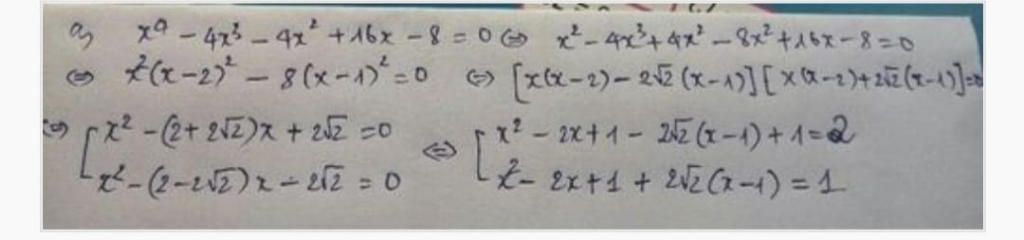 a) x⁴ - 4x³ - 4x² + 16x - 8 = 0 ⇔ x² - 4x³ + 4x² - 8x² + 16x - 8 = 0
⇔ x²(x-2)² - 8(x-1)² = 0 ⇔ [x(x-2) - 2√2(x-1)][x(x-2) + 2√2(x-1)] = 0
⇔ [ x² - (2+2√2)x + 2√2 = 0 ⇔ [ x² - 2x + 1 - 2√2(x-1) + 1 = 2
x² - (2-2√2)x - 2√2 = 0 x² - 2x + 1 + 2√2(x-1) = 1